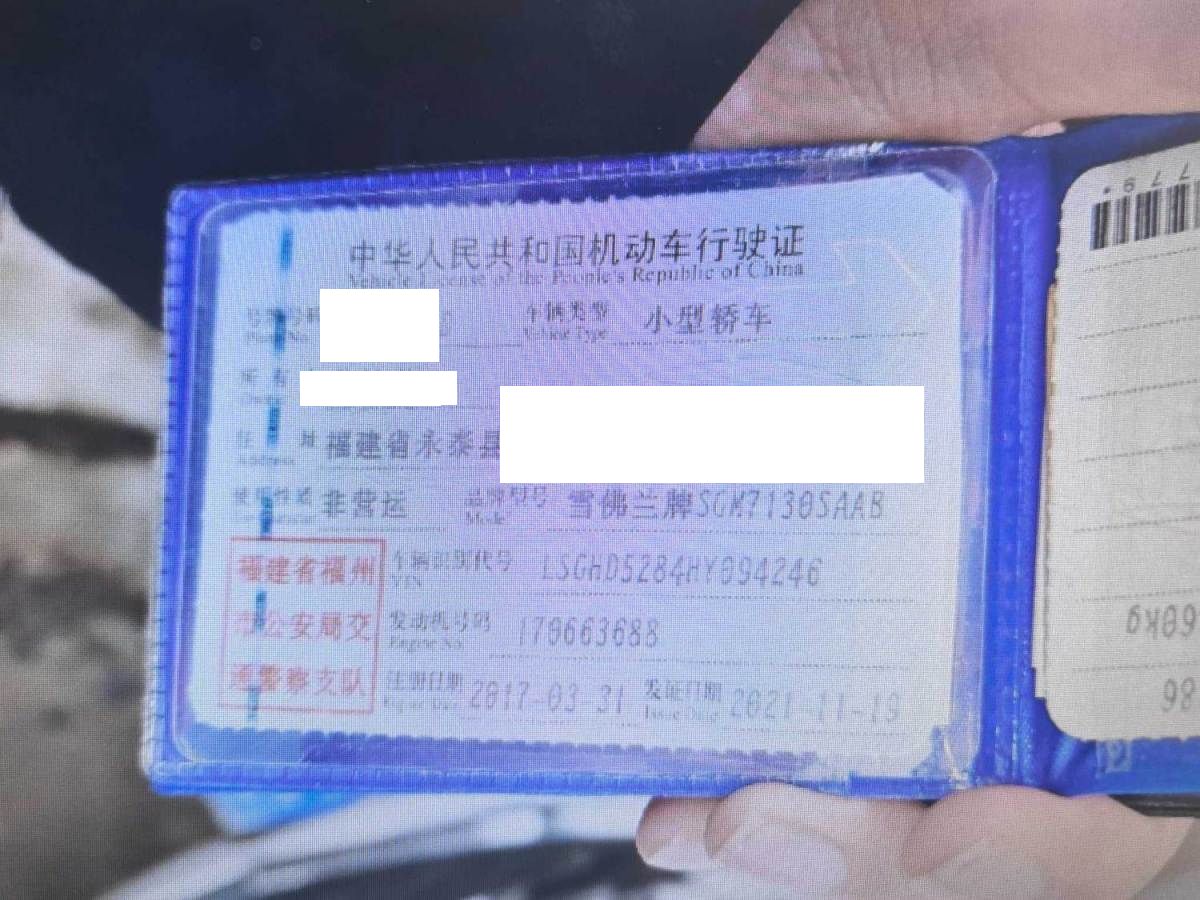 中华人民共和国机动车行驶证
Vehicle License of the People's Republic of China
号牌号码 车辆类型 小型轿车
Plate No. Vehicle Type
所有
住 址 福建省永泰县
Address
使用性质 非营运 品牌型号 雪佛兰牌SGM7130SAAB
Model
车辆识别代号 LSGHD5284HY094246
VIN
发动机号码 170663688
Engine No.
注册日期 2017-03-31 发证日期 2021-11-19
Register Date Issue Date
福建省福州
市公安局交
通警察支队
779*
60kg
86